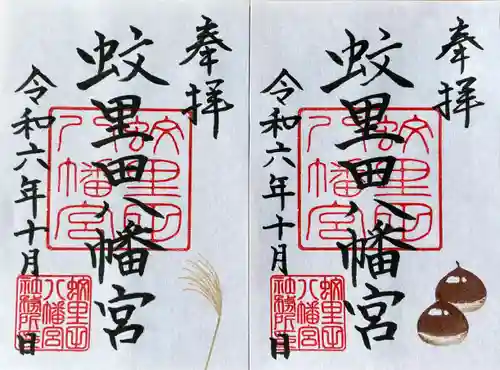 奉拝
蚊里田八幡宮
令和六年十月 日
蚊里田
八幡宮
蚊里田
八幡宮
奉拝
蚊里田八幡宮
令和六年十月 日
蚊里田
八幡宮
蚊里田
八幡宮